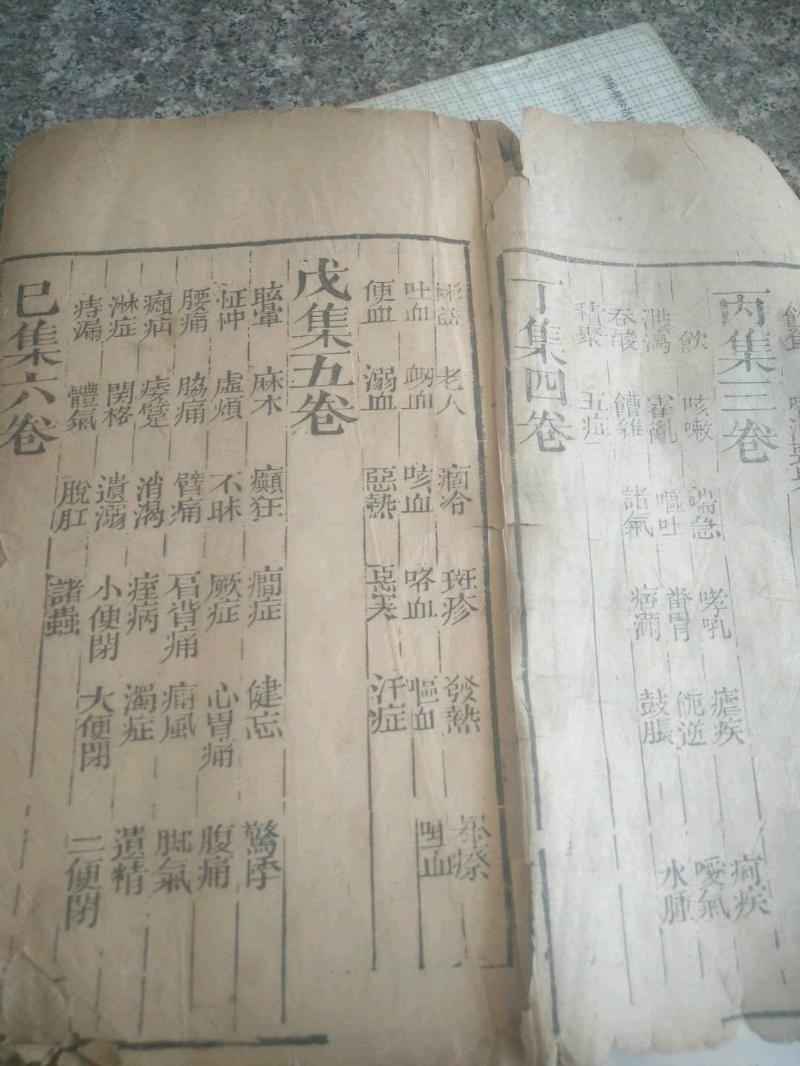 丙集三卷
飲 咳嗽 喘急 哮吼 瘧疾 痢疾
泄瀉 霍亂 嘔吐 翻胃 呃逆 噯氣
吞酸 嘈雜 諸氣 痞滿 鼓脹 水腫
積聚 五疸
丁集四卷
老人 痼冷 斑疹 發熱
吐血 衂血 咳血 咯血 嘔血
便血 溺血 惡熱 惡寒 汗症
戊集五卷
眩暈 麻木 癲狂 癇症 健忘 驚悸
怔忡 虛煩 不眠 厥症 心胃痛 腹痛
腰痛 脇痛 臂痛 肩背痛 痛風 脚氣
痿躄 消渴 痓病 濁症 遺精
淋症 関格 遺溺 小便閉 大便閉 二便閉
痔漏 體氣 脫肛 諸蟲
巳集六卷